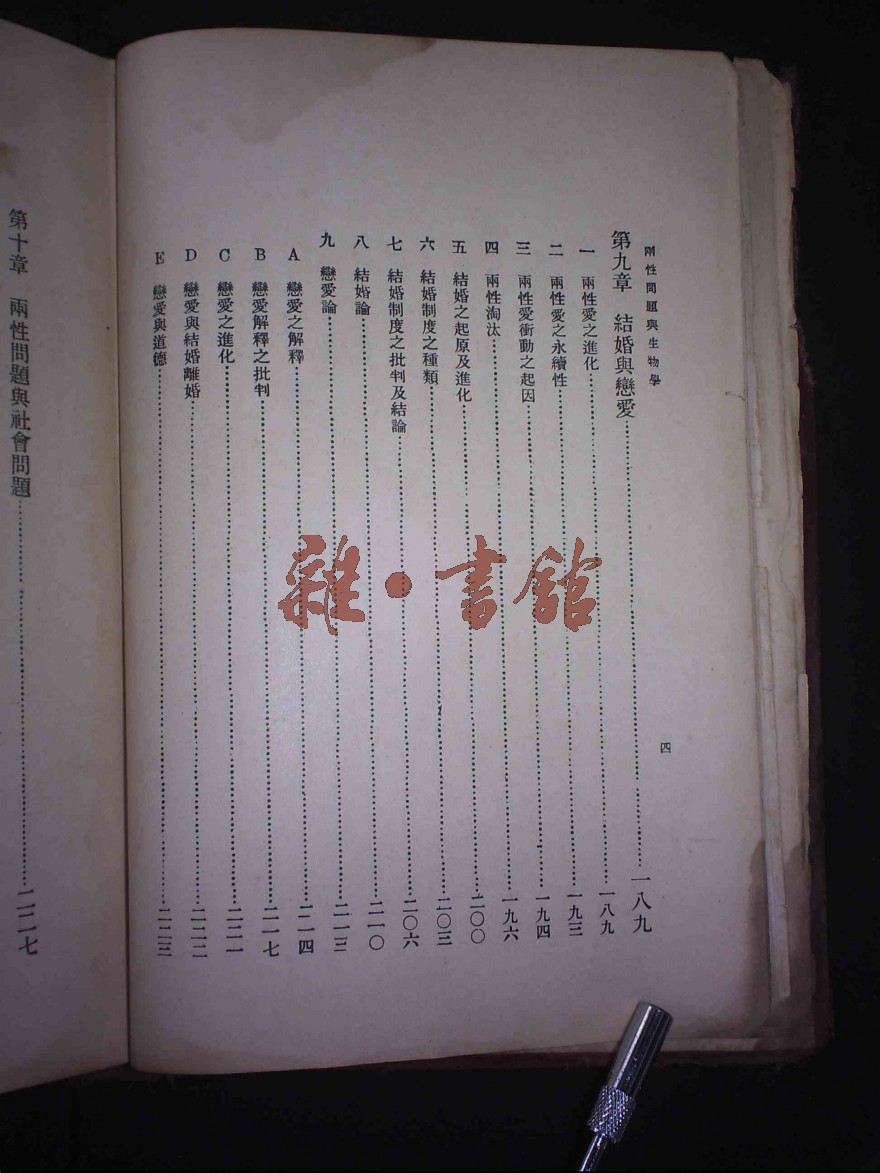 兩性問題與生物學
四
第九章 結婚與戀愛……一八九
一 兩性愛之進化……一八九
二 兩性愛之永續性……一九三
三 兩性愛衝動之起因……一九四
四 兩性淘汰……一九六
五 結婚之起原及進化……二〇〇
六 結婚制度之種類……二〇三
七 結婚制度之批判及結論……二〇六
八 結婚論……二一〇
九 戀愛論……二一三
A 戀愛之解釋……二一四
B 戀愛解釋之批判……二一七
C 戀愛之進化……二二一
D 戀愛與結婚離婚……二二二
E 戀愛與道德……二二三
第十章 兩性問題與社會問題……二二七
雜·書館